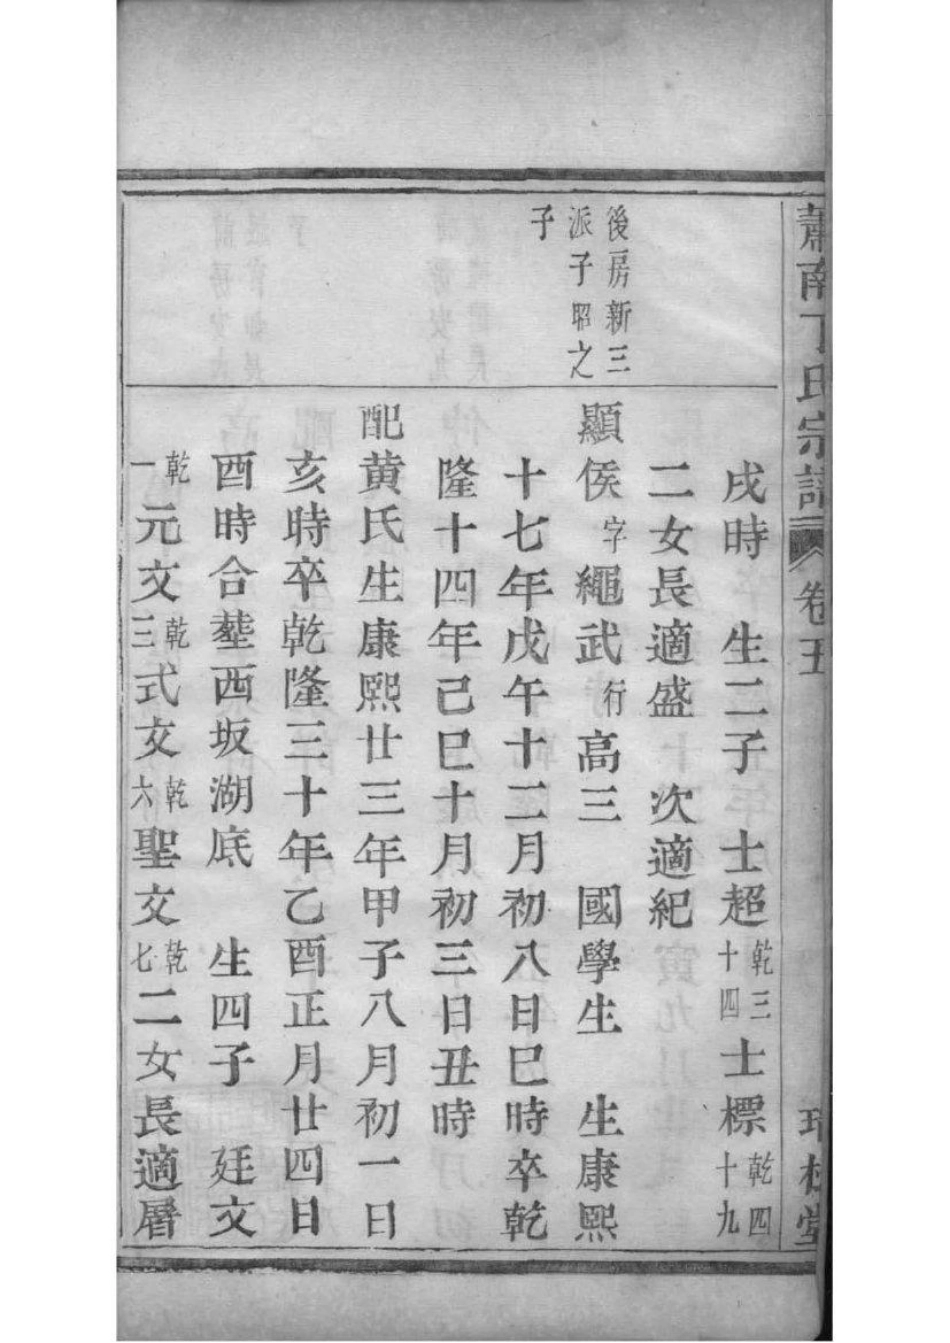 蕭南丁氏宗譜 卷五 堂
戌時 生二子 士超乾三十四士標乾四十九
二女長適盛 次適紀
後房新三
派子昭之
子
顯侯字繩武行高三 國學生 生康熙
十七年戊午十二月初八日巳時卒乾
隆十四年己巳十月初三日丑時
配黄氏生康熙廿三年甲子八月初一日
亥時卒乾隆三十年乙酉正月廿四日
酉時合塟西坂湖底 生四子 廷文
乾一元文乾三式文乾六聖文乾七二女長適